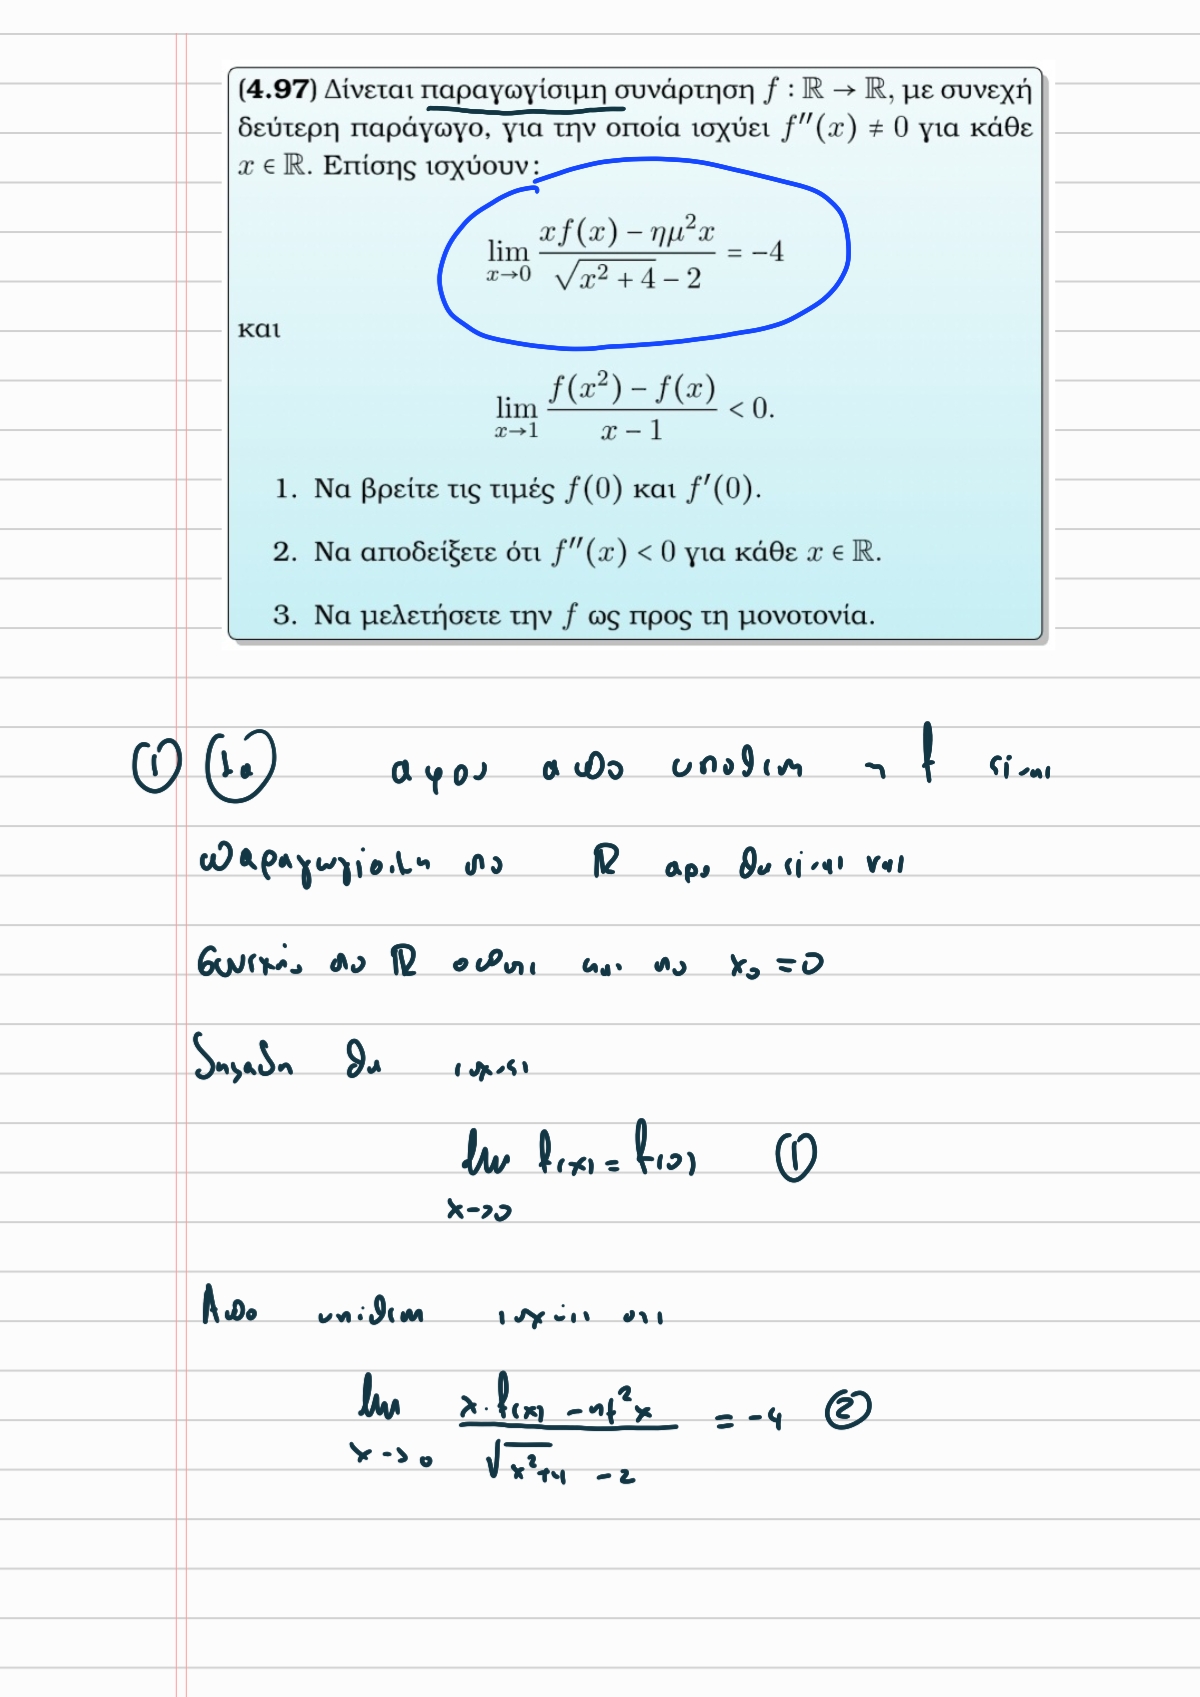 (4.97) Δίνεται παραγωγίσιμη συνάρτηση f : ℝ → ℝ, με συνεχή
δεύτερη παράγωγο, για την οποία ισχύει f″(x) ≠ 0 για κάθε
x ∈ ℝ. Επίσης ισχύουν:
lim_{x→0} (xf(x) − ημ²x)/(√(x² + 4) − 2) = −4
και
lim_{x→1} (f(x²) − f(x))/(x − 1) < 0.
1. Να βρείτε τις τιμές f(0) και f′(0).
2. Να αποδείξετε ότι f″(x) < 0 για κάθε x ∈ ℝ.
3. Να μελετήσετε την f ως προς τη μονοτονία.
① 1α αφου απο υποθεση η f ειναι
παραγωγισιμη στο ℝ αρα θα ειναι και
συνεχης στο ℝ οποτε και στο x₀ = 0
δηλαδη θα ισχυει
lim_{x→0} f(x) = f(0) ①
Απο υποθεση ισχυει οτι
lim_{x→0} (x·f(x) − ημ²x)/(√(x²+4) − 2) = −4 ②